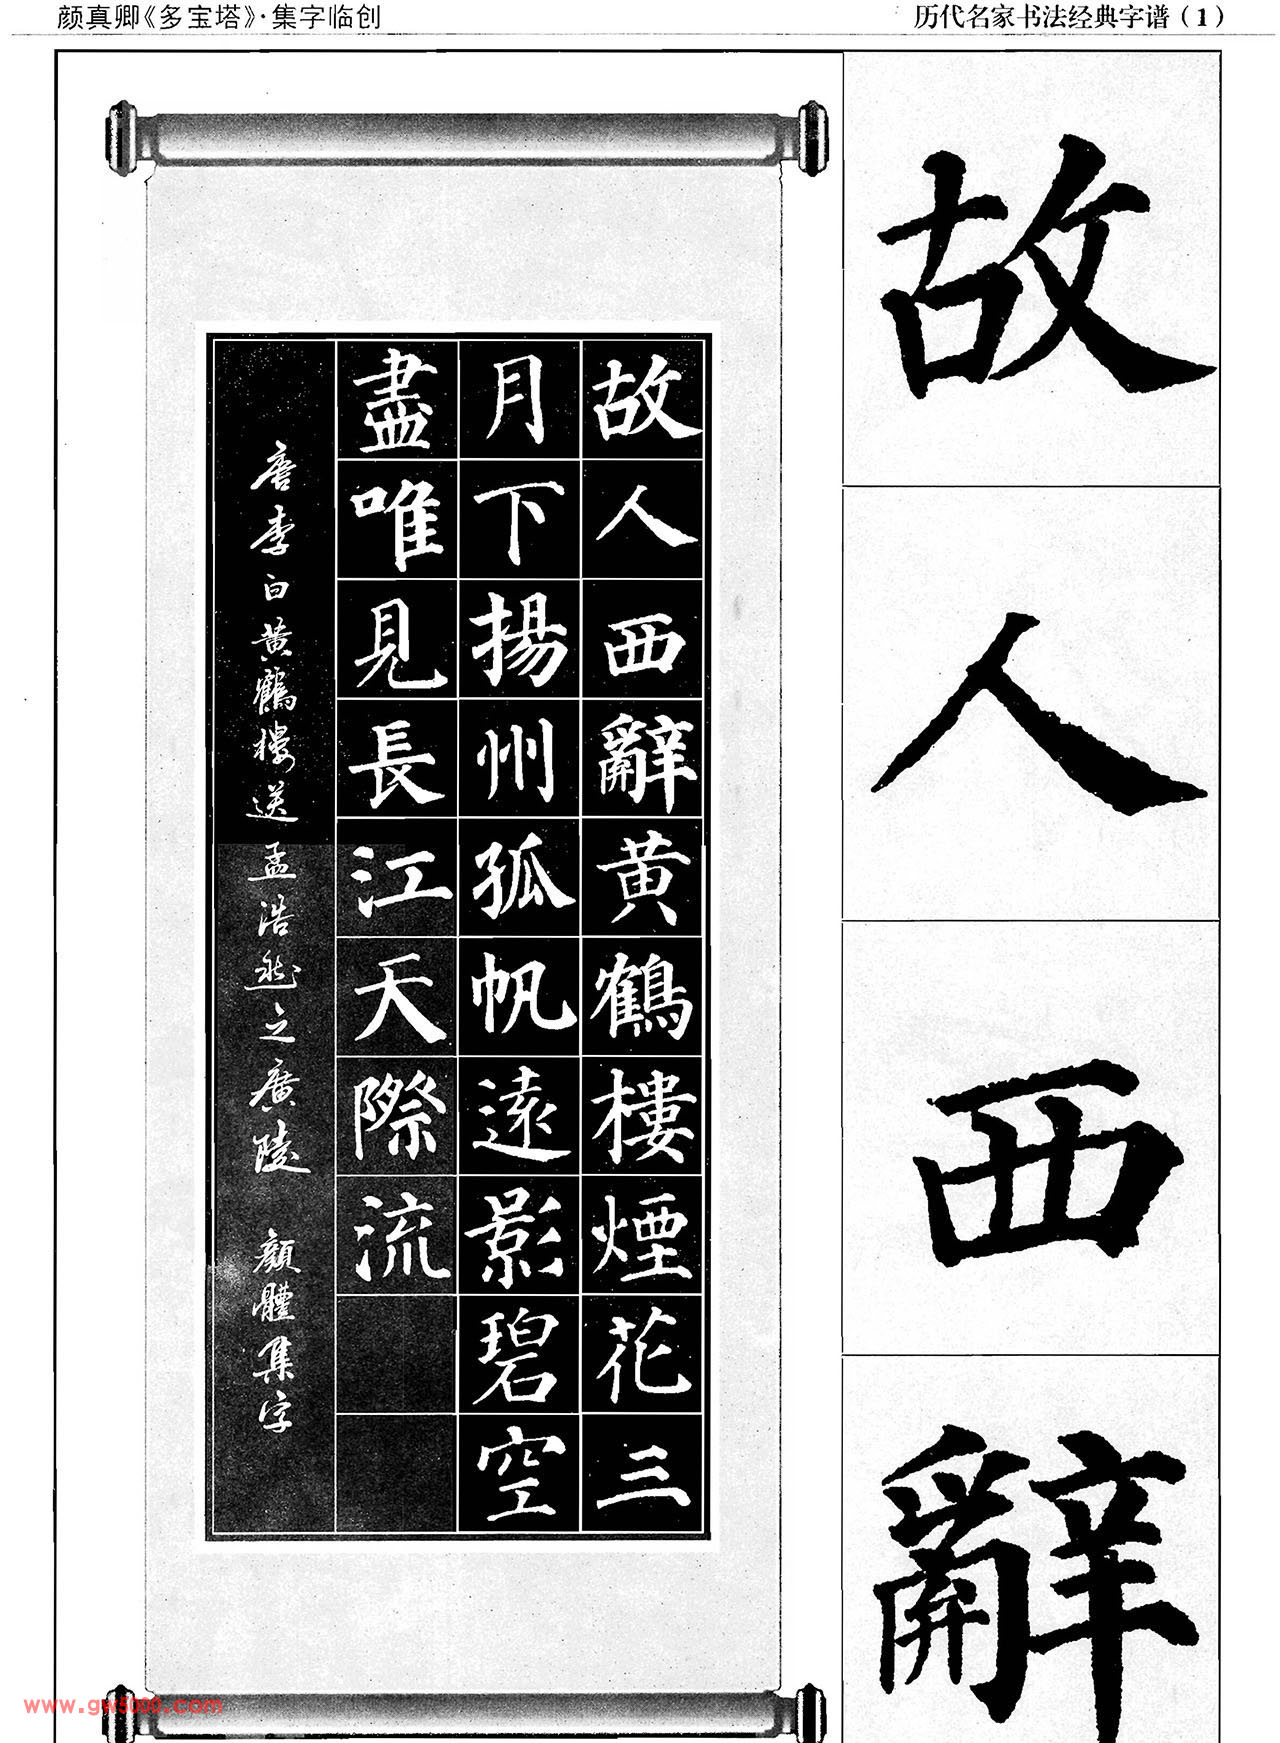 颜真卿《多宝塔》·集字临创
历代名家书法经典字谱（1）
故人西辭黄鶴樓煙花三
月下揚州孤帆遠影碧空
盡唯見長江天際流
唐李白黄鶴樓送孟浩然之廣陵 顔體集字
故
人
西
辭
www.gw5000.com